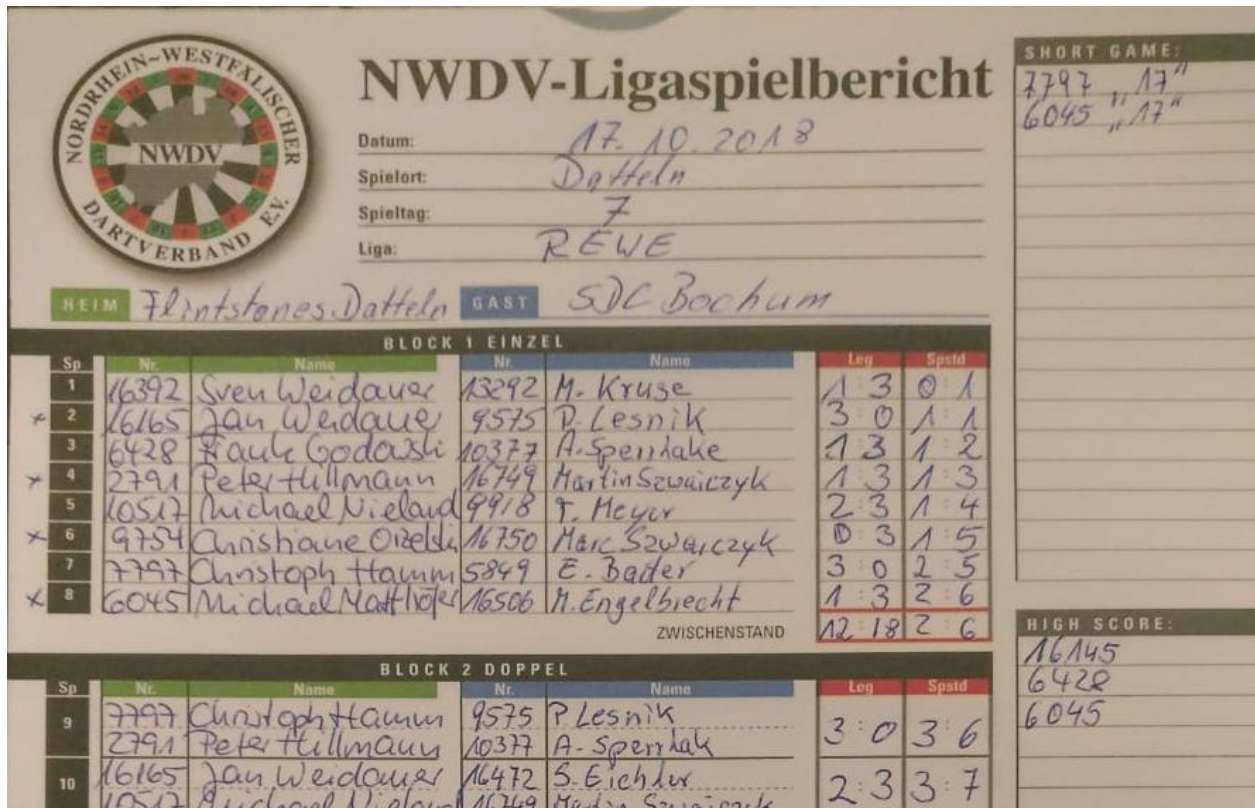 NORDRHEIN~WESTFÄLISCHER
NWDV
DARTVERBAND E.V.
NWDV-Ligaspielbericht
Datum: 17.10.2018
Spielort: Datteln
Spieltag: 7
Liga: REWE
HEIM Flintstones Datteln GAST SDC Bochum
BLOCK 1 EINZEL
Sp Nr. Name Nr. Name Leg Spstd
1 16392 Sven Weidauer 13292 M. Kruse 1:3 0:1
x 2 16165 Jan Weidauer 9575 P. Lesnik 3:0 1:1
3 6428 Godowski 10377 A. Sperrlake 1:3 1:2
x 4 2791 Peter Hillmann 16749 Martin Szwaiczyk 1:3 1:3
5 10517 Michael Nieland 9918 T. Meyer 2:3 1:4
x 6 9754 Christiane 16750 Marc Szwarczyk 0:3 1:5
7 7797 Christoph Hamm 5849 E. Bader 3:0 2:5
x 8 6045 Michael Matthöfer 16506 M. Engelbrecht 1:3 2:6
ZWISCHENSTAND 12:18 2:6
BLOCK 2 DOPPEL
Sp Nr. Name Nr. Name Leg Spstd
9 7797 Christoph Hamm 9575 P. Lesnik 3:0 3:6
2791 Peter Hillmann 10377 A. Sperrlak
10 16165 Jan Weidauer 16472 S. Eichler 2:3 3:7
10517 Michael Nieland 16749 Martin Szwaiczyk
SHORT GAME:
7797 „17"
6045 „17"
HIGH SCORE:
16145
6428
6045